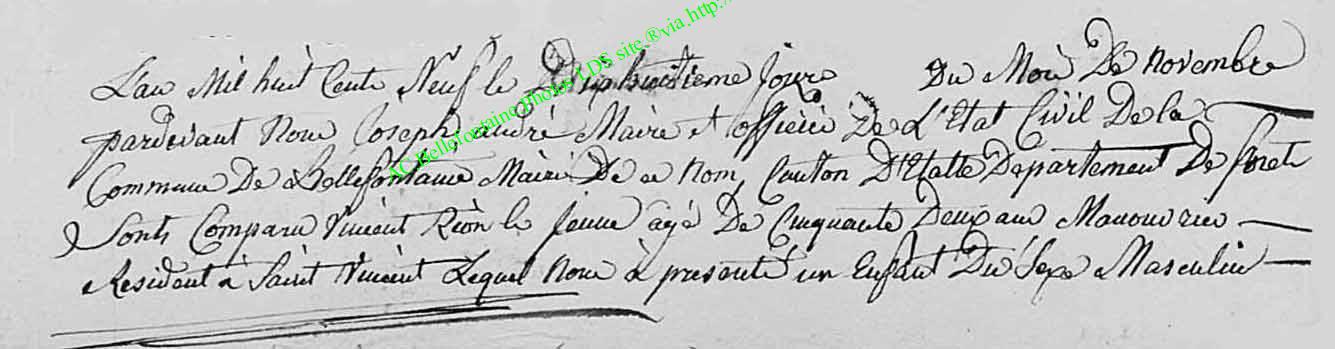 ©AC Bellefontaine Photos LDS site ®via http:/
L'an Mil huit Cents Neuf le Dixhuitieme Jour Du Mois De novembre
pardevant Nous Joseph andré Maire et officier De L'Etat Civil De la
Commune De Bellefontaine Mairie De ce Nom, Canton D'Etalle Departement De forets
Sonts Comparu Vincent Rion le Jeune agé De Cinquante Deux ans Manouvrier
Resident à Saint Vincent Lequel Nous à presenté un Enfant Du Sexe Masculin